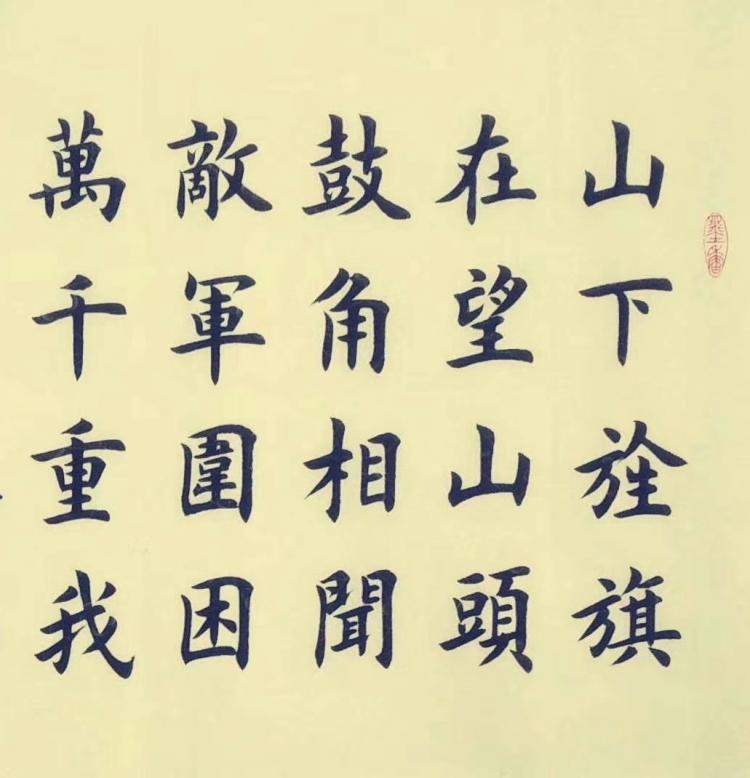 山下旌旗
在望山頭
鼓角相聞
敵軍圍困
萬千重我